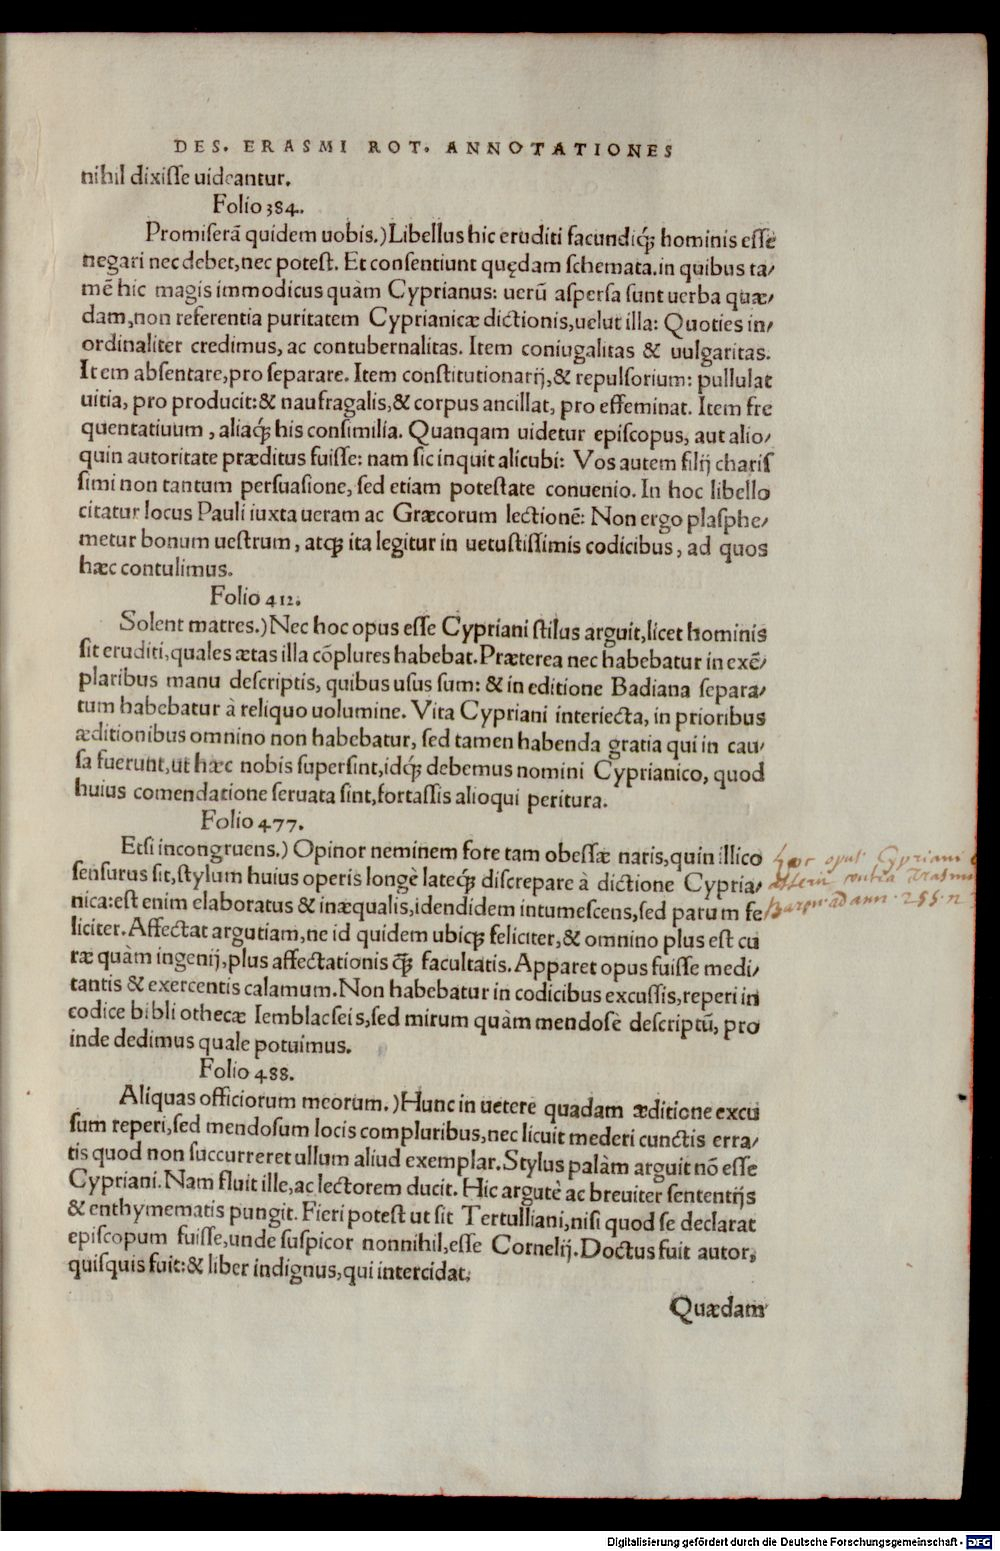 DES. ERASMI ROT. ANNOTATIONES
nihil dixiſſe uideantur.
Folio 384.
Promiſerā quidem uobis.) Libellus hic eruditi facundiq́ʒ hominis eſſe
negari nec debet, nec poteſt. Et conſentiunt quędam ſchemata. in quibus ta/
mē hic magis immodicus quàm Cyprianus: uerū aſperſa ſunt uerba quæ/
dam, non referentia puritatem Cyprianicæ dictionis, uelut illa: Quoties in/
ordinaliter credimus, ac contubernalitas. Item coniugalitas & uulgaritas.
Item abſentare, pro ſeparare. Item conſtitutionarij, & repulſorium: pullulat
uitia, pro producit: & naufragalis, & corpus ancillat, pro effeminat. Item fre
quentatiuum, aliaq́ʒ his conſimilia. Quanqam uidetur epiſcopus, aut alio/
quin autoritate præditus fuiſſe: nam ſic inquit alicubi: Vos autem filij chariſ
ſimi non tantum perſuaſione, ſed etiam poteſtate conuenio. In hoc libello
citatur locus Pauli iuxta ueram ac Græcorum lectionē: Non ergo plaſphe/
metur bonum ueſtrum, atqʒ ita legitur in uetuſtiſſimis codicibus, ad quos
hæc contulimus.
Folio 412.
Solent matres.) Nec hoc opus eſſe Cypriani ſtilus arguit, licet hominis
ſit eruditi, quales ætas illa cōplures habebat. Præterea nec habebatur in exē/
plaribus manu deſcriptis, quibus uſus ſum: & in editione Badiana ſepara/
tum habebatur à reliquo uolumine. Vita Cypriani interiecta, in prioribus
æditionibus omnino non habebatur, ſed tamen habenda gratia qui in cau/
ſa fuerunt, ut hæc nobis ſuperſint, idq́ʒ debemus nomini Cyprianico, quod
huius comendatione ſeruata ſint, fortaſſis alioqui peritura.
Folio 477.
Etſi incongruens.) Opinor neminem fore tam obeſſæ naris, quin illico
ſenſurus ſit, ſtylum huius operis longè lateq́ʒ diſcrepare à dictione Cypria/
nica: eſt enim elaboratus & inæqualis, idendidem intumeſcens, ſed parum fe
liciter. Affectat argutiam, ne id quidem ubiqʒ feliciter, & omnino plus eſt cu
ræ quàm ingenij, plus affectationis q̄ʒ facultatis. Apparet opus fuiſſe medi/
tantis & exercentis calamum. Non habebatur in codicibus excuſſis, reperi in
codice bibliothecæ Iemblacſeis, ſed mirum quàm mendoſè deſcriptū, pro
inde dedimus quale potuimus.
Hoc opus Cypriani
contra Erasmu
ad ann. 255. n
Folio 488.
Aliquas officiorum meorum.) Hunc in uetere quadam æditione excu
ſum reperi, ſed mendoſum locis compluribus, nec licuit mederi cunctis erra/
tis quod non ſuccurreret ullum aliud exemplar. Stylus palàm arguit nō eſſe
Cypriani. Nam fluit ille, ac lectorem ducit. Hic argutè ac breuiter ſententijs
& enthymematis pungit. Fieri poteſt ut ſit Tertulliani, niſi quod ſe declarat
epiſcopum fuiſſe, unde ſuſpicor nonnihil, eſſe Cornelij. Doctus fuit autor,
quiſquis fuit: & liber indignus, qui intercidat.
Quædam
Digitalisierung gefördert durch die Deutsche Forschungsgemeinschaft - DFG